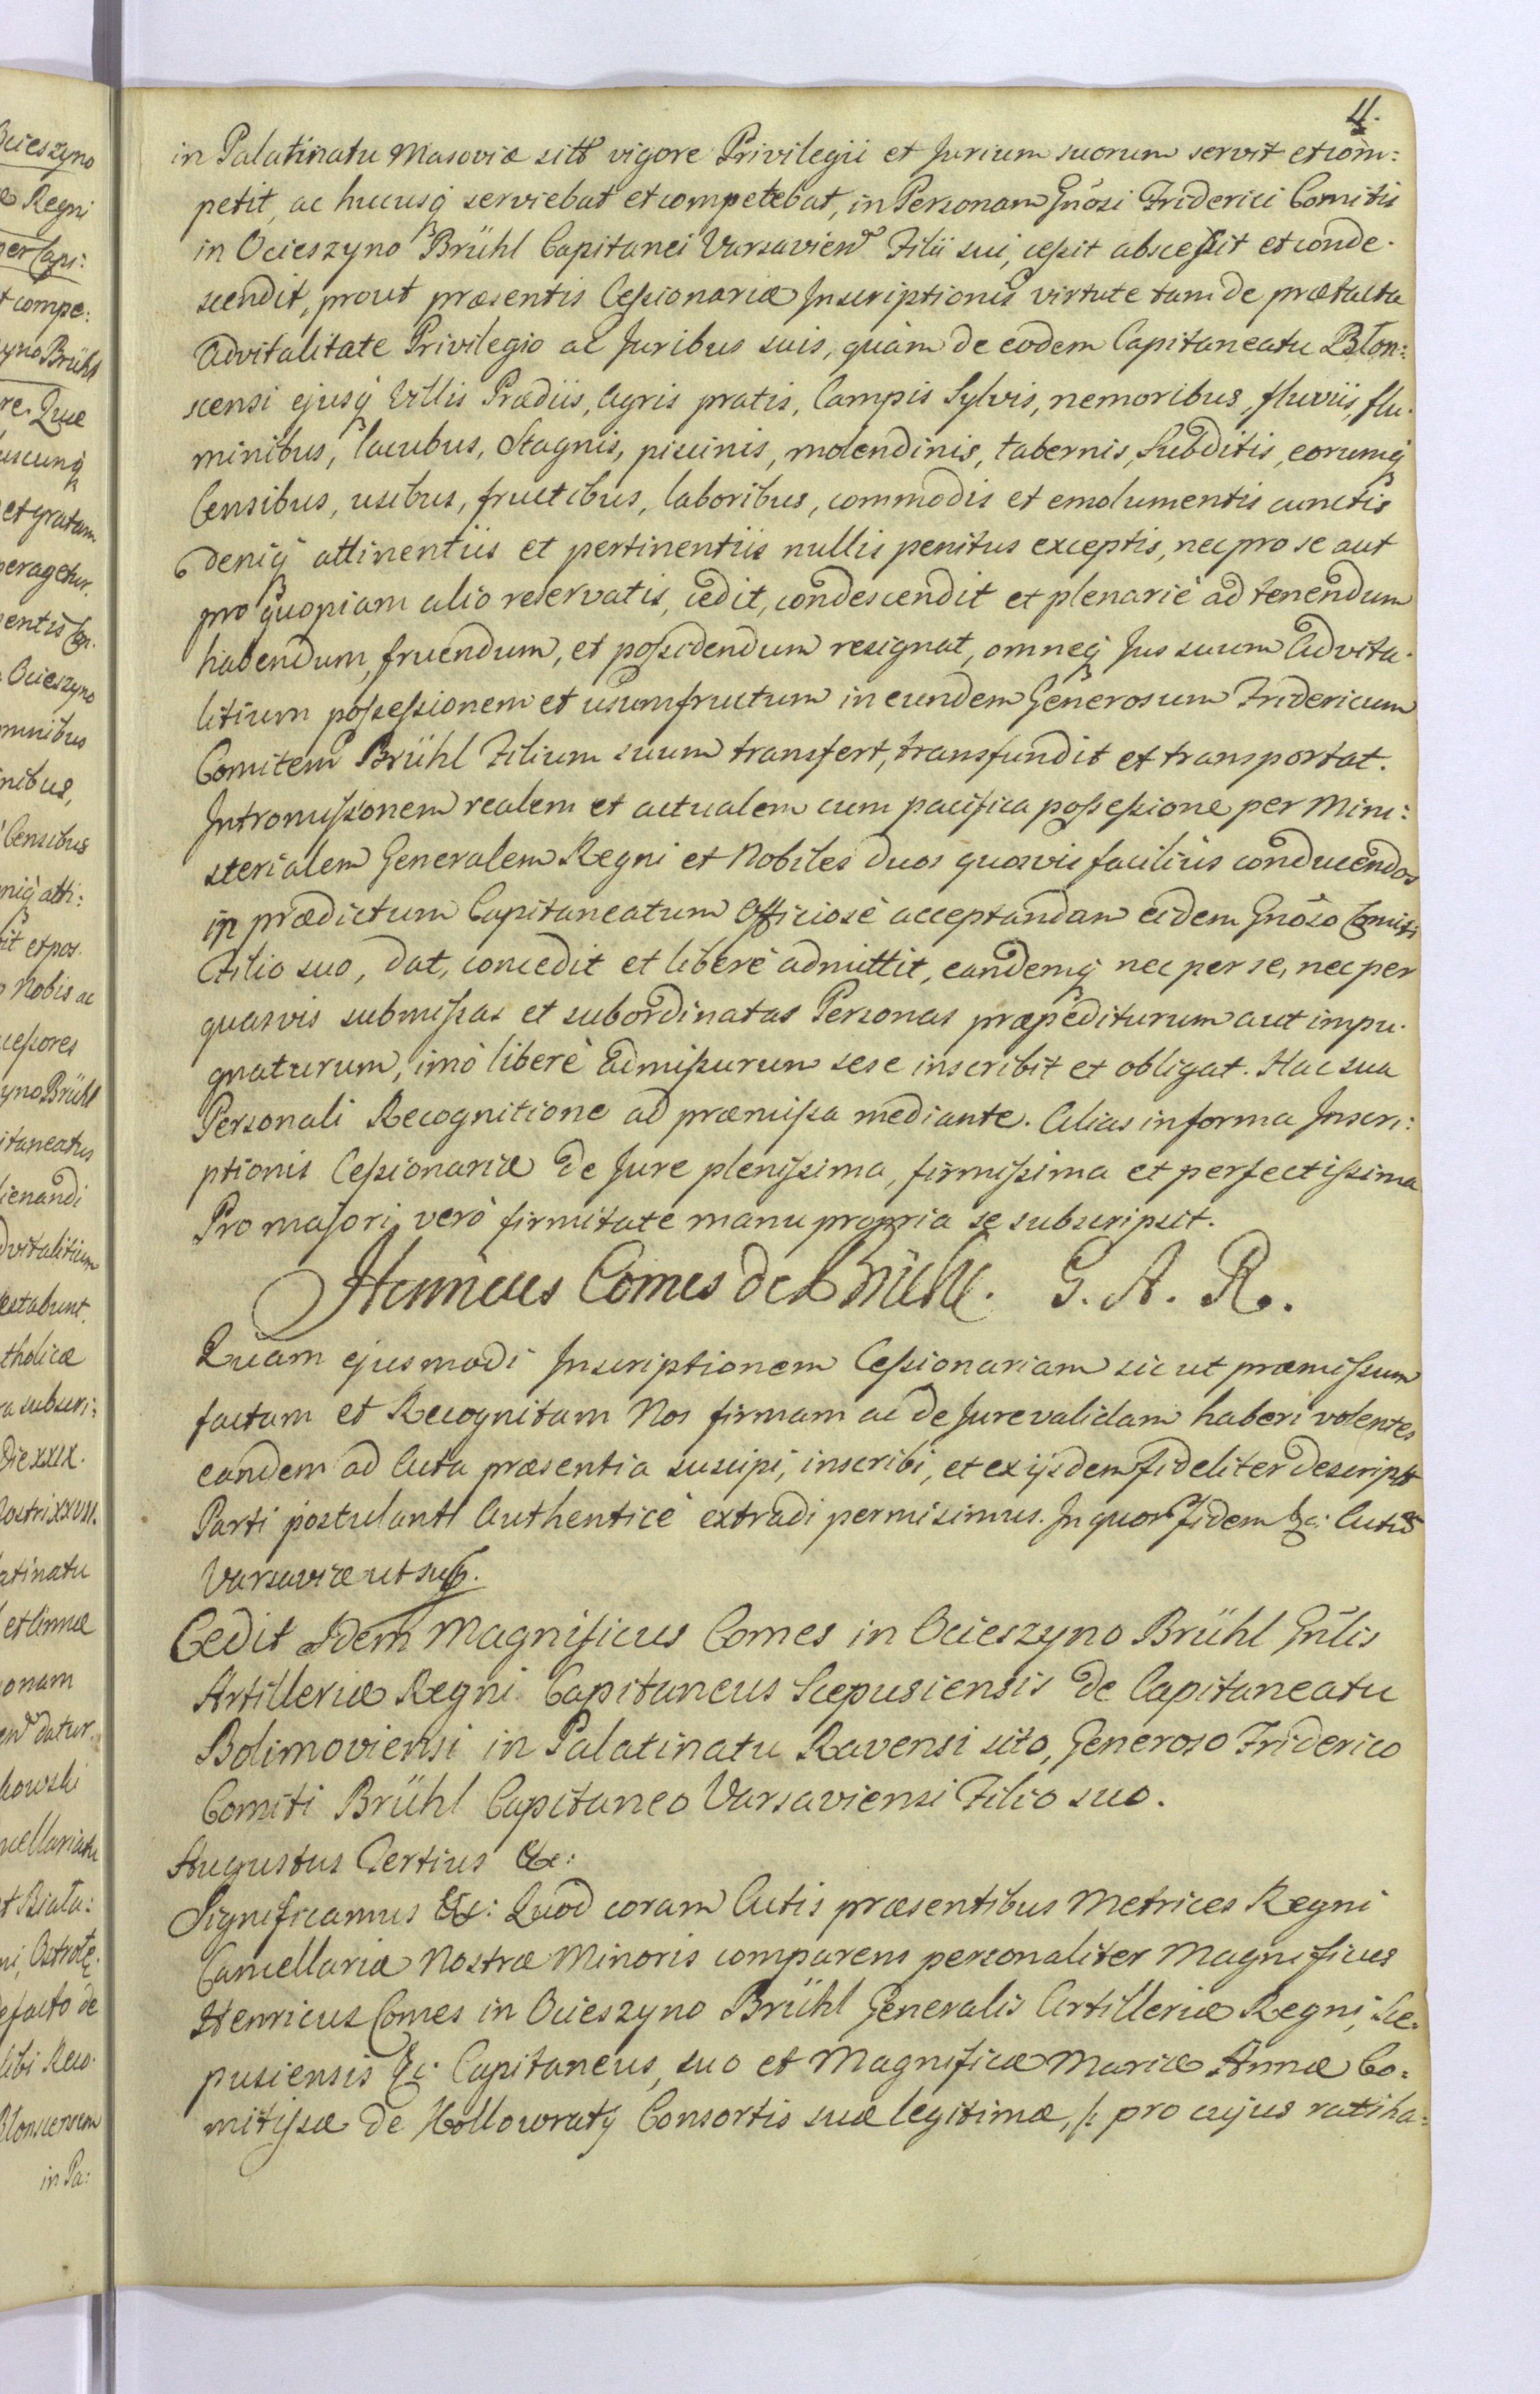 11.
in Palatinatu Masoviæ sitō vigore Privilegii et Jurium suorum servit et com:
petit, ac hucusq serviebat et competebat, in Personam Gnōsi Friderici Comitis
in Ocieszyno Brühl Capitanei Varsavien Filii sui, cessit abscessit et conde:
scendit, prout præsentis Cessionariæ Inscriptionis virtute tam de prætacta
advitalitate Privilegio ac Juribus suis, quàm de eodem Capitaneatu Blon:
scensi ejusq Villis Prædiis, Agris pratis, Campis Sylvis, nemoribus, fluviis, flu:
minibus, lacubus, Stagnis, piscinis, molendinis, tabernis, Subditis, eorumq
Censibus, usibus, fructibus, laboribus, commodis et emolumentis cunctis
deniq attinentiis et pertinentiis nullis penitus exceptis, nec pro se aut
pro quopiam alio reservatis, cedit, condescendit et plenariè ad tenendum
habendum, fruendum, et possidendum resignat, omneq Jus suum Advita:
litium possessionem et usumfructum in eundem Generosum Fridericum
Comitem Brühl Filium suum transfert, transfundit et transportat.
Intromissionem realem et actualem cum pacifica possessione per Mini:
sterialem Generalem Regni et Nobiles duos quosvis faciliùs conducendos
in prædictum Capitaneatum Officiosè acceptandam eidem Gnōso Comiti
Filio suo, dat, concedit et liberè admittit, eandemq nec per se, nec per
quasvis submissas et subordinatas Personas præpediturum aut impu:
gnaturum, imò liberè admissurum sese inscribit et obligat. Hac sua
Personali Recognitione ad præmissa mediante. Alias in forma Inscri:
ptionis Cessionariæ de Jure plenissima, firmissima et perfectissima
Pro majori verò firmitate manu propria se subscripsit.
Henricus Comes de Brühl. G. A. R.
Quam ejusmodi Inscriptionem Cessionariam sic ut præmissum
factam et Recognitam Nos firmam ac de Jure validam haberi volentes
eandem ad Acta præsentia suscipi, inscribi, et ex ijsdem fideliter descript
Parti postulanti Authenticè extradi permisimus. In quor fidem &c: Actū
Varsaviæ ut sup.
Cedit Idem Magnificus Comes in Ocieszyno Brühl Gnlis
Artilleriæ Regni Capitaneus Scepusiensis de Capitaneatu
Bolimoviensi in Palatinatu Ravensi sito, Generoso Friderico
Comiti Brühl Capitaneo Varsaviensi Filio suo.
Augustus Tertius &c:
Significamus &c: Quod coram Actis præsentibus Metrices Regni
Cancellariæ Nostræ Minoris comparens personaliter Magnificus
Henricus Comes in Ocieszyno Brühl Generalis Artilleriæ Regni, Sce:
pusiensis &c: Capitaneus, suo et Magnificæ Mariæ Annæ Co:
mitissæ de Kollowraty Consortis suæ legitimæ, /: pro cujus ratiha: